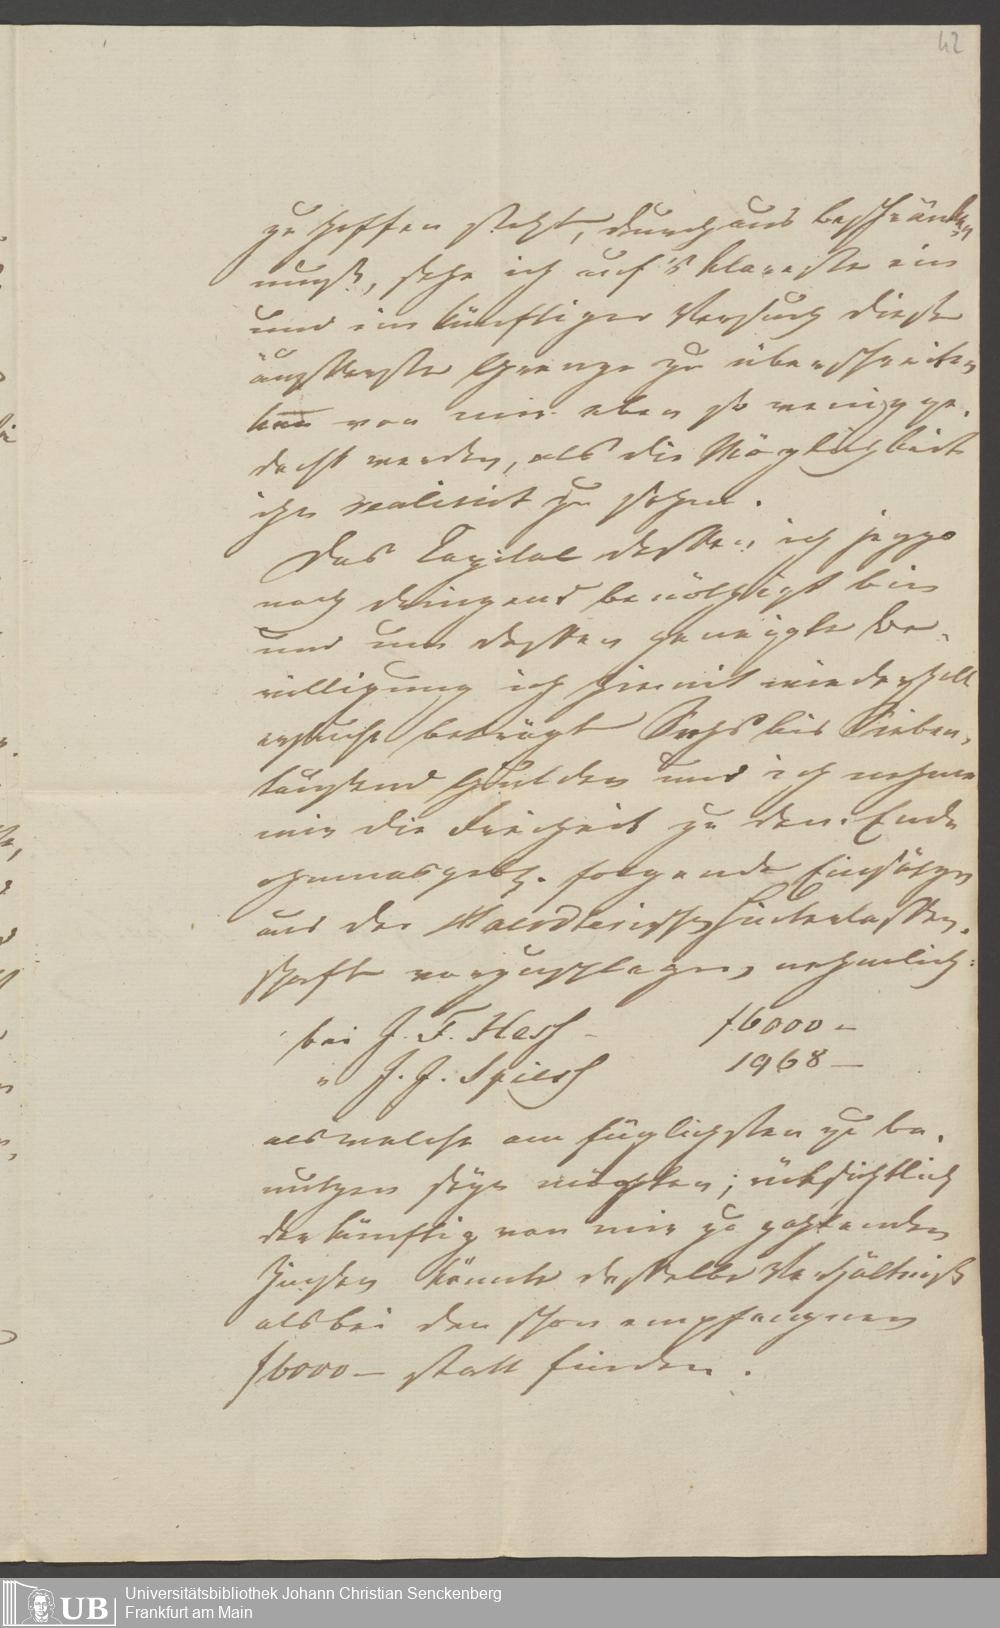 42
zu hoffen steht, durchaus beschränken
muß, sehe ich auf's klareste ein
und ein künftiger Versuch diese
äußerste Grenze zu überschreiten
kan von mir eben so wenig ge-
dacht werden, als die Möglichkeit
ihn realisirt zu sehen.
Das Capital dessen ich jezzo
noch dringend benöthigt bin
und um dessen geneigte Be-
willigung ich hiermit wiederholt
ersuche beträgt Sechs bis Sieben-
tausend Gulden und ich nehme
mir die Freiheit zu dem Ende
folgende Einsätze
aus der Hinterlassen-
schaft vorzuschlagen, nehmlich:
bei J. F. Hess – f 6000 –
" J. J. Spiess 1968 –
als welche am füglichsten zu be-
nutzen seyn möchten; rücksichtlich
der künftig von mir zu zahlenden
Zinsen könnte dasselbe Verhältniß
als bei den schon empfangnen
f 6000 – statt finden.
Universitätsbibliothek Johann Christian Senckenberg
Frankfurt am Main
UB